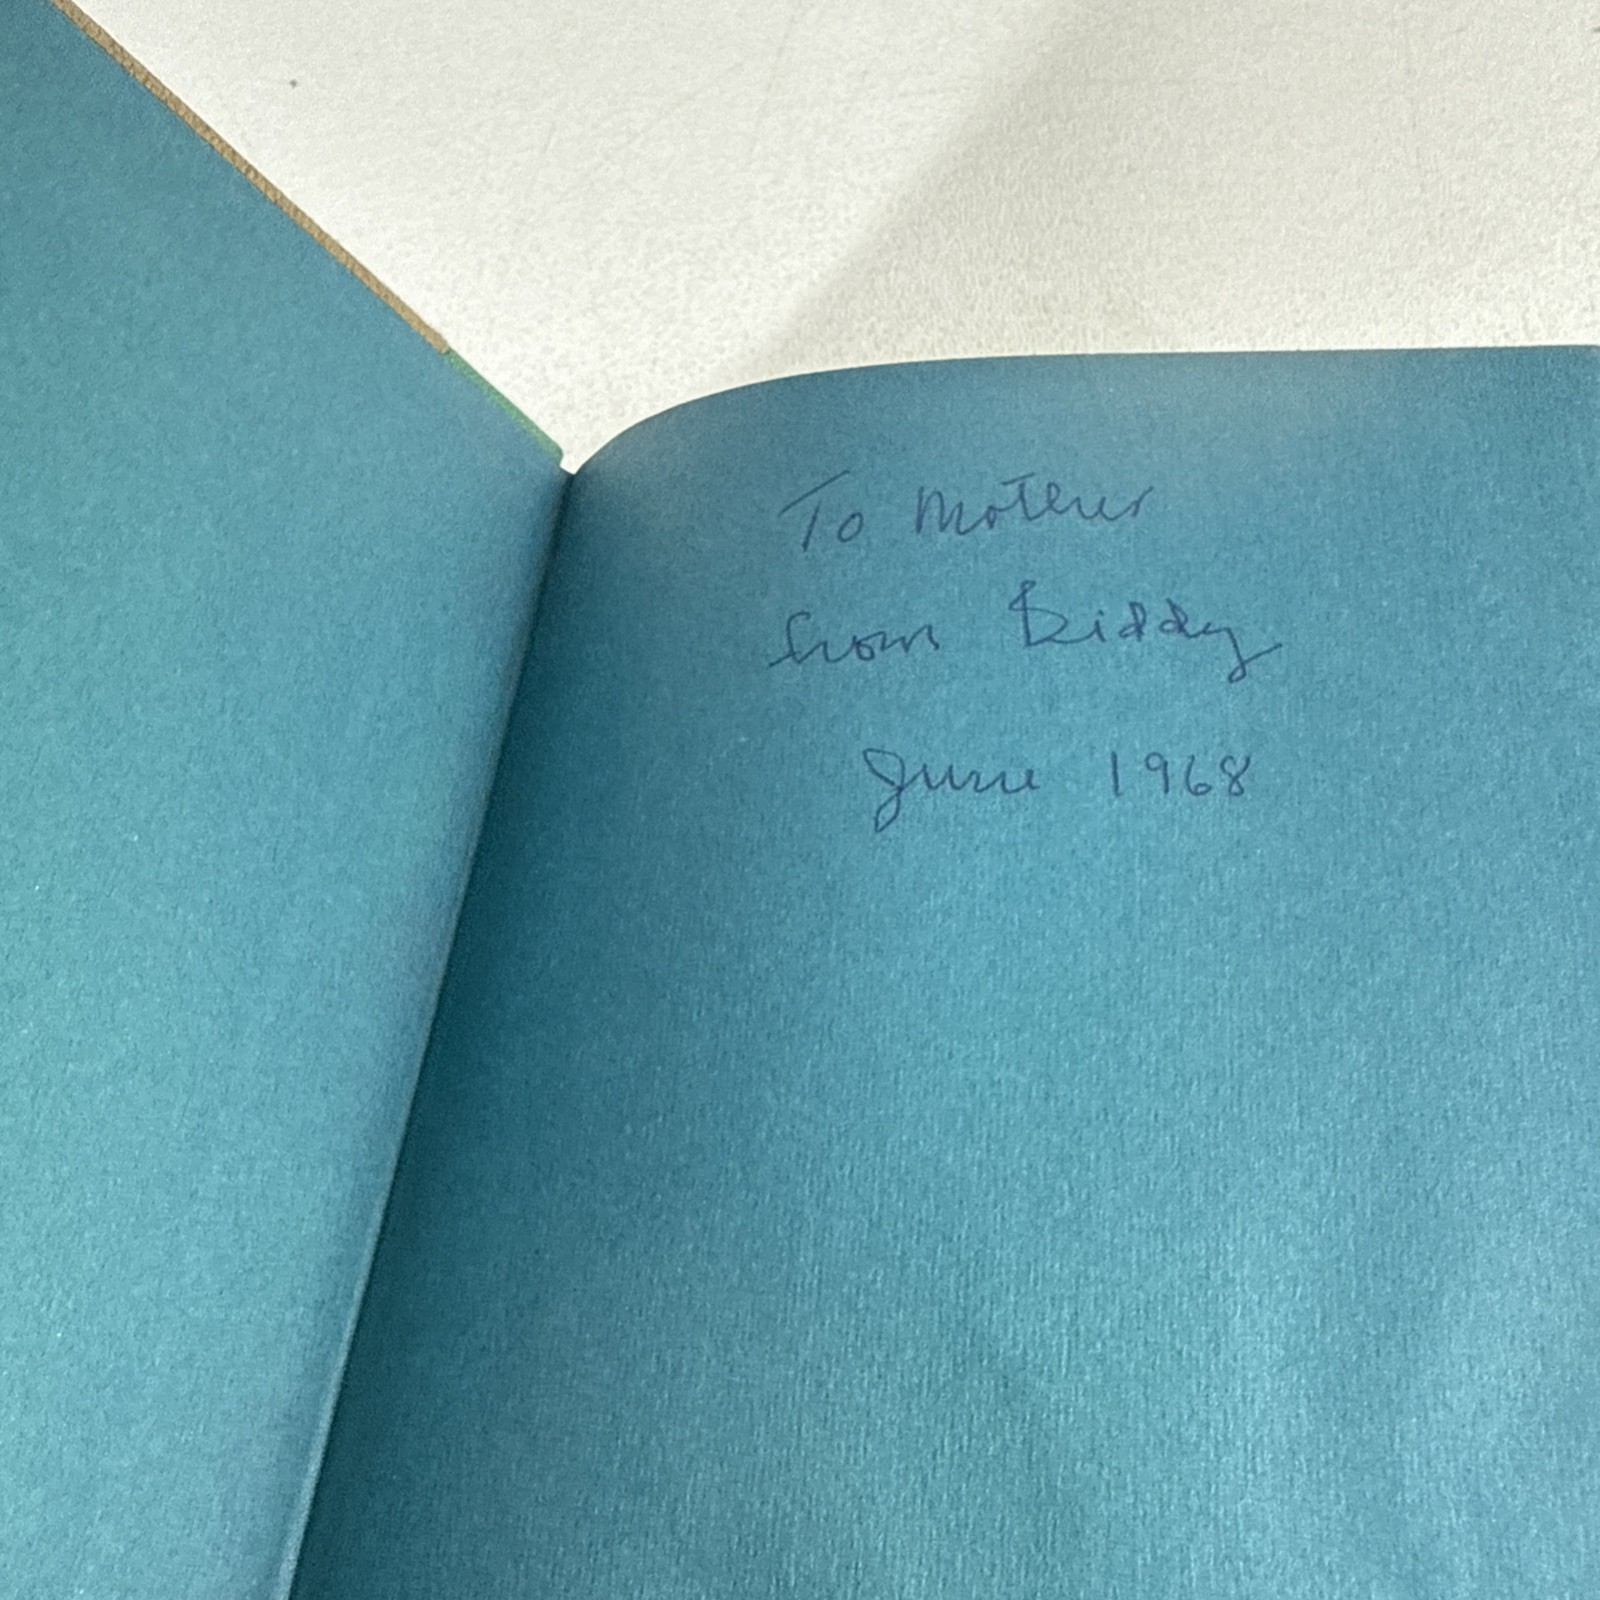 To Mother
from Biddy
June 1968